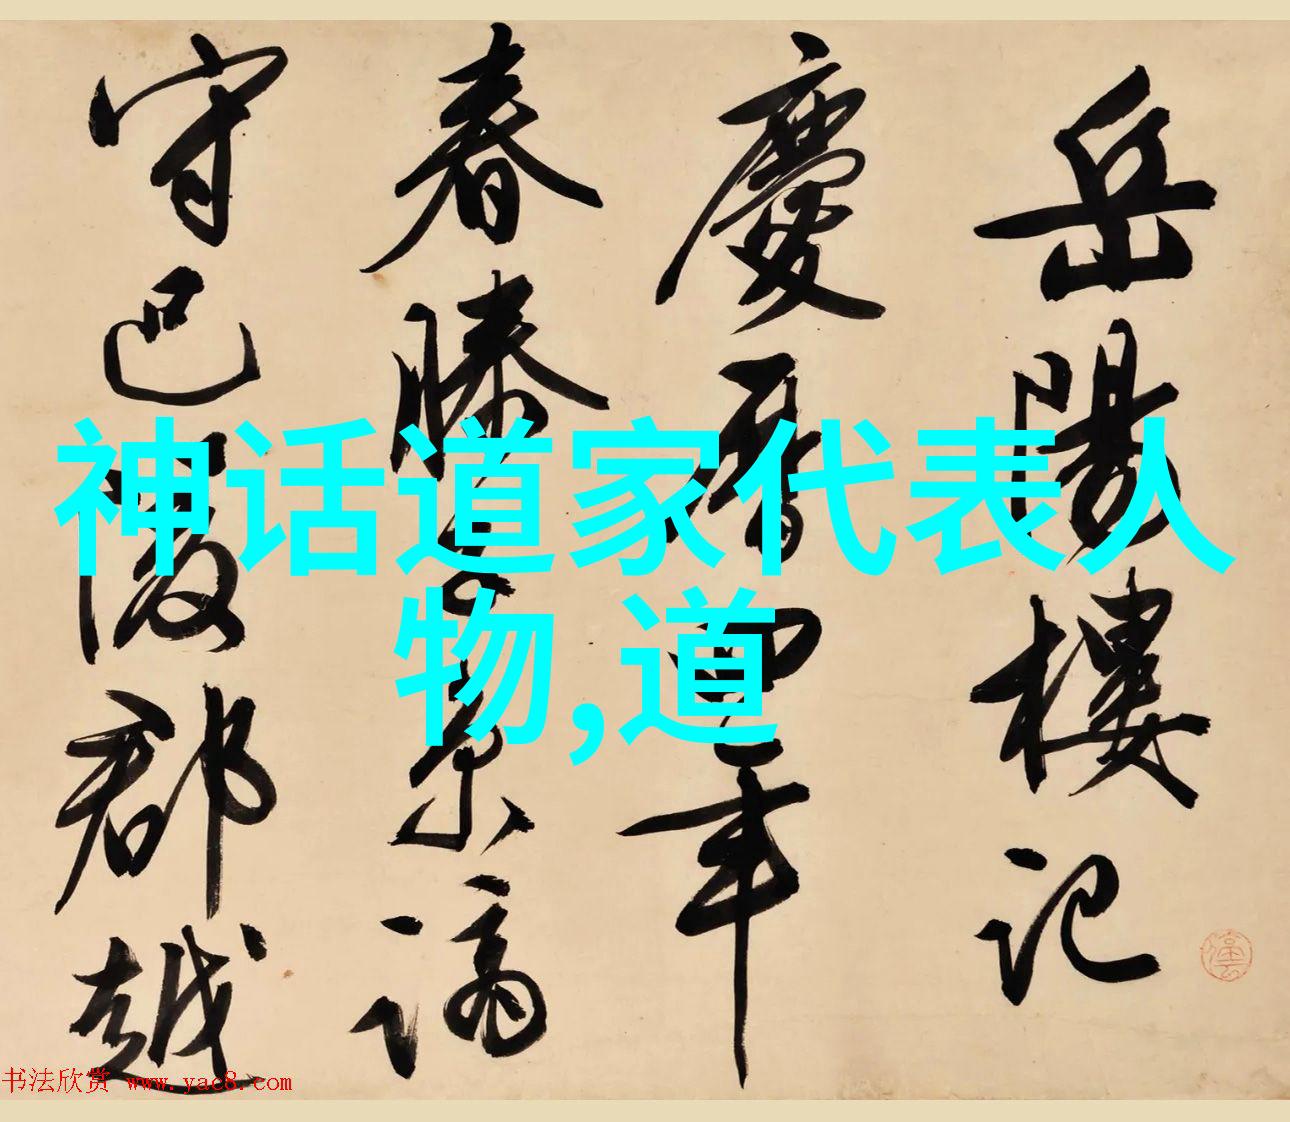 岳陽樓記
慶曆四年
春滕子京謫
守巴陵郡越
神话道家代表人
物,道
书法欣赏 www.yac8.com